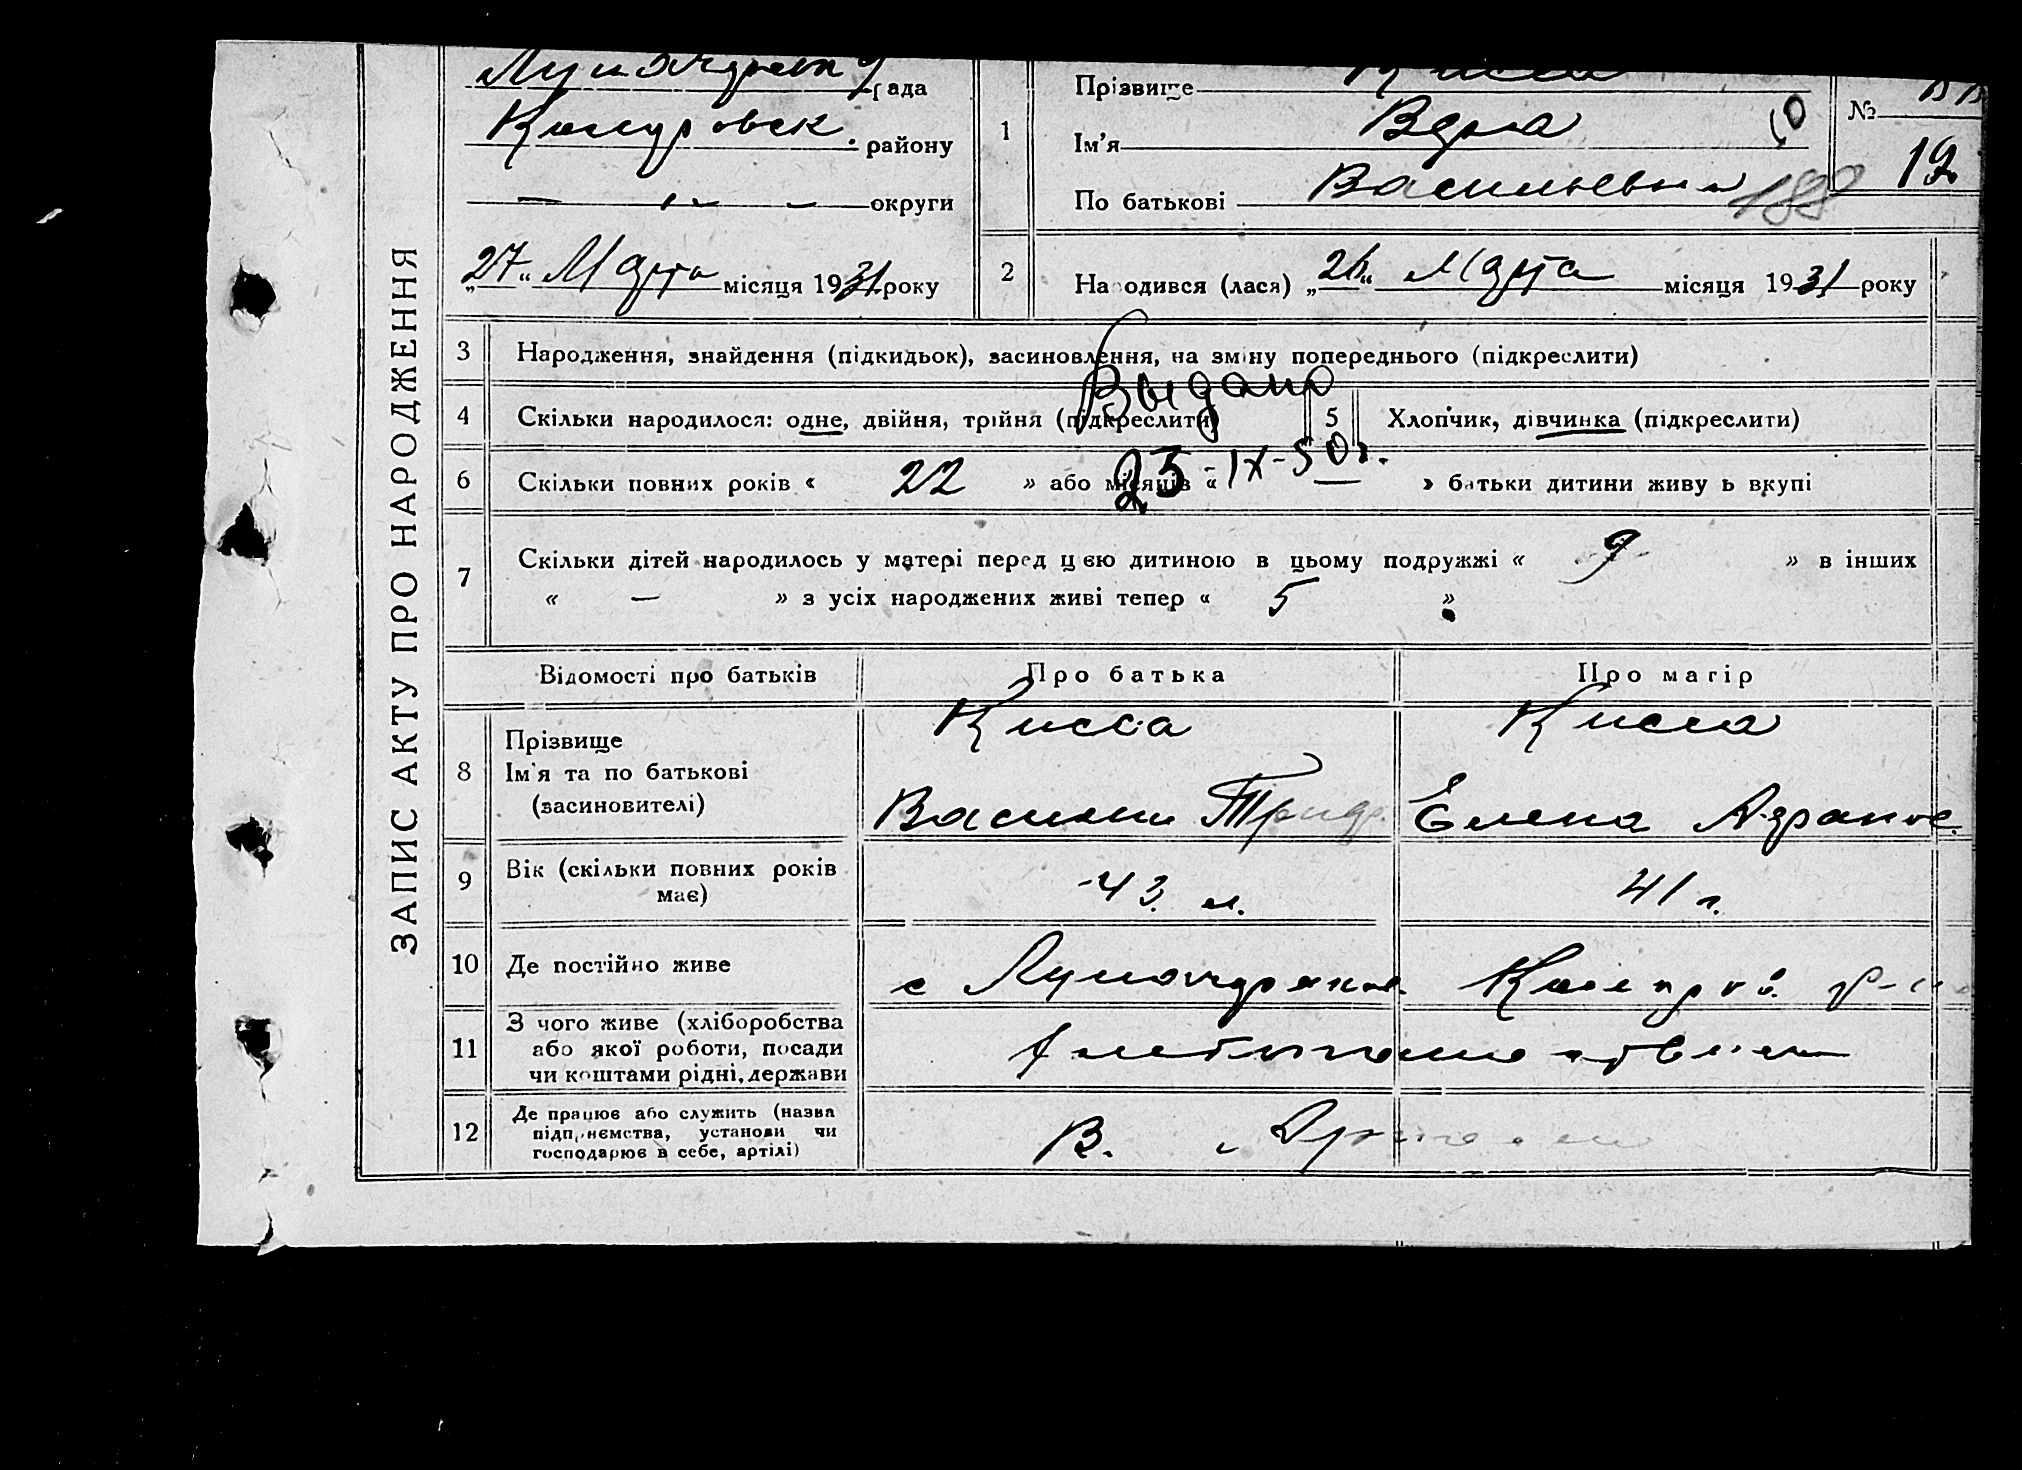 ЗАПИС АКТУ ПРО НАРОДЖЕННЯ
рада
району
округи
„27“ Марта місяця 1931 року
1
Прізвище Кисса
Ім'я Вера
По батькові Васильевна
№
19.
188
2 Народився (лася) „26“ Марта місяця 1931 року
3 Народження, знайдення (підкидьок), засиновлення, на зміну попереднього (підкреслити)
Выдано
4 Скільки народилося: одне, двійня, трійня (підкреслити)
5 Хлопчик, дівчинка (підкреслити)
25-IX-50г.
6 Скільки повних років « 22 » або місяців « — » батьки дитини живуть вкупі
7 Скільки дітей народилось у матері перед цією дитиною в цьому подружжі « 9 » в інших
« — » з усіх народжених живі тепер « 5 »
Відомості про батьків Про батька Про матір
8 Прізвище
Ім'я та по батькові
(засиновителі)
Кисса Кисса
Василий Елена
9 Вік (скільки повних років має) 43 л. 41 г.
10 Де постійно живе с р-на
11 З чого живе (хліборобства
або якої роботи, посади
чи коштами рідні, держави
12 Де працює або служить (назва
підприємства, установи чи
господарює в себе, артілі)
В.